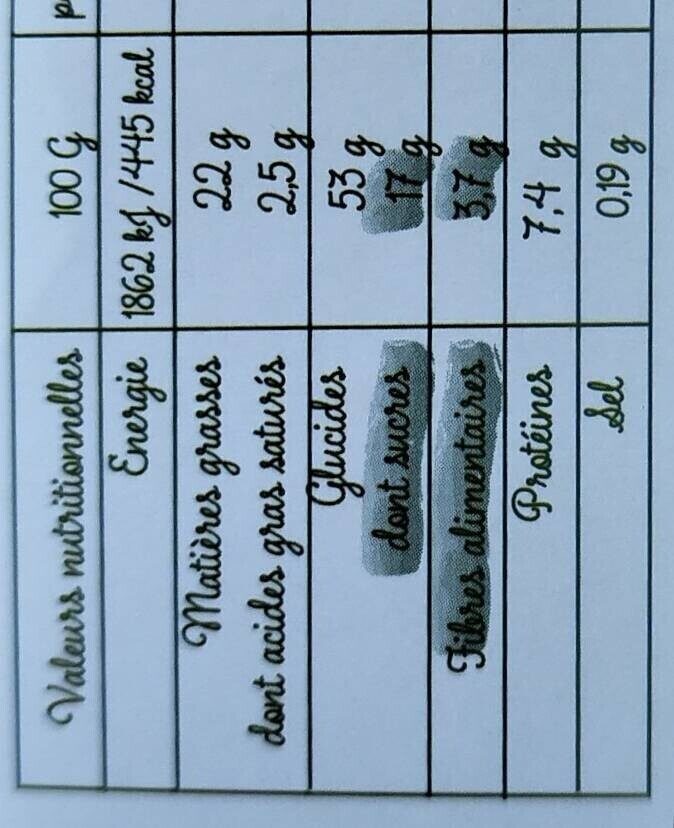 Valeurs nutritionnelles 100 G p
Energie 1862 kJ / 445 kcal
Matières grasses 22 g
dont acides gras saturés 2,5 g
Glucides 53 g
dont sucres 17 g
Fibres alimentaires 3,7 g
Protéines 7,4 g
Sel 0,19 g